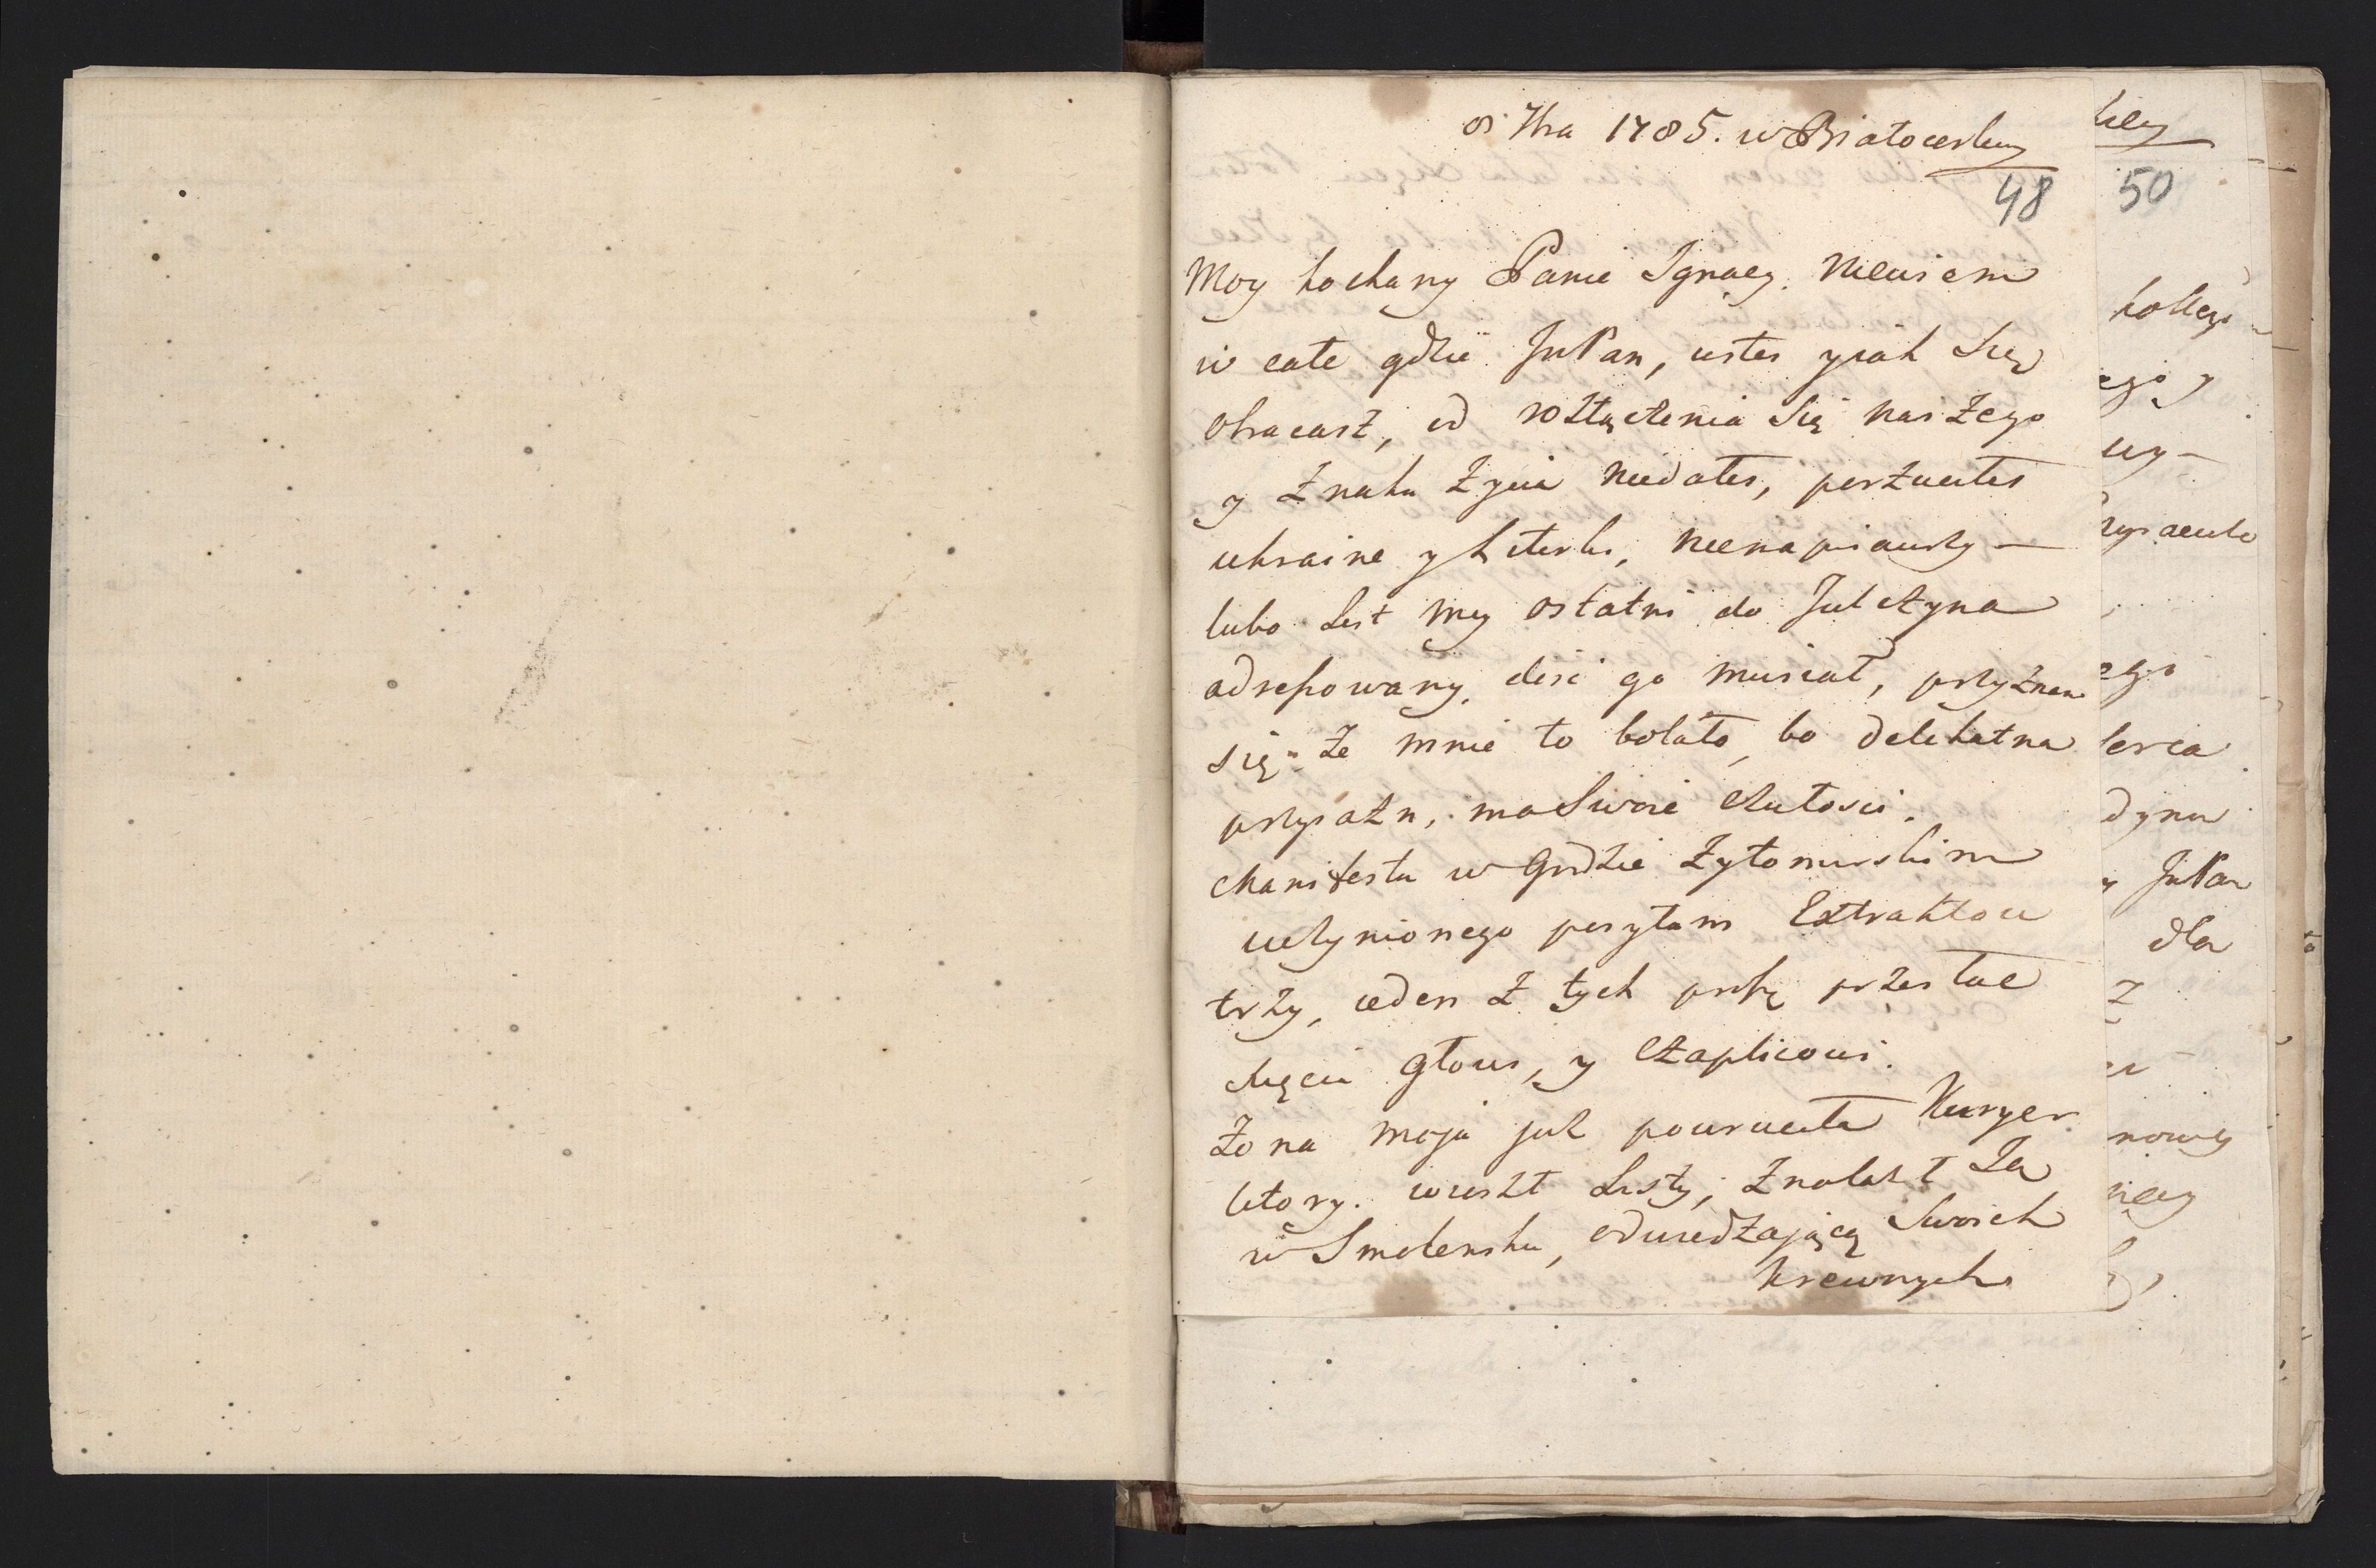 7bra 1785. w Białocerkwy
48
Moy kochany Panie Ignacy. niewiem
w cale gdzie JmPan, iestes y iak Się
obracasz, od rozłączenia Się naszego
y znaku życia niedałes, porzuciłes
ukraine y Literki, nienapisawszy —
lubo List moy ostatni do Tulczyna
adressowany, dość go musiał, przyznam
się że mnie to bolało, bo delikatna
przyiazn, ma Swoie czułosci.
Manifestu w Grodzie Żytomirskim
uczynionego posyłam Extraktow
trzy, ieden z tych proszę przesłac
Xięciu Głowi, y Czaplicowi.
Żona moja juz powrociła Kuryer
ktory. wiozł Listy, znalazł Ią
w Smolensku, odwiedzaiącą Swoich
krewnych
50
ego y
wy —
ego
serca
JmPan
dla
z
nowy